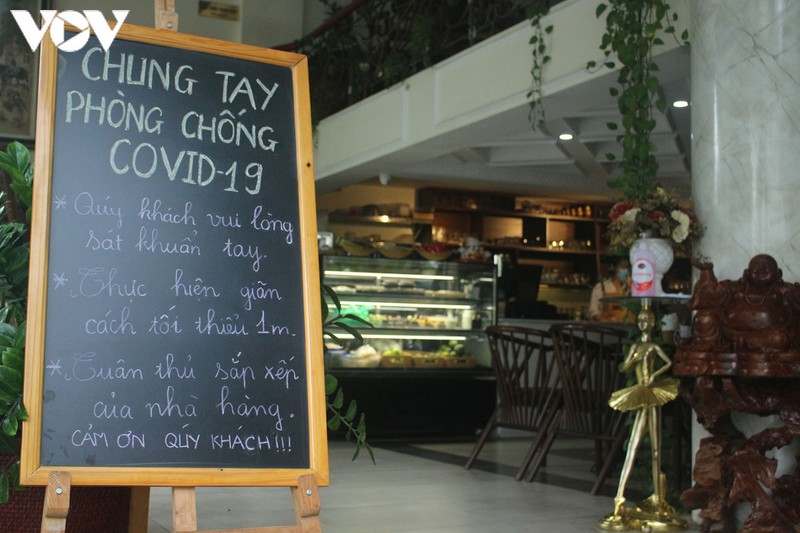 VOV
CHUNG TAY
PHÒNG CHỐNG
COVID-19
* Qúy khách vui lòng
sát khuẩn tay.
* Thực hiện giãn
cách tối thiểu 1m.
* Tuân thủ sắp xếp
của nhà hàng.
CẢM ƠN QÚY KHÁCH!!!